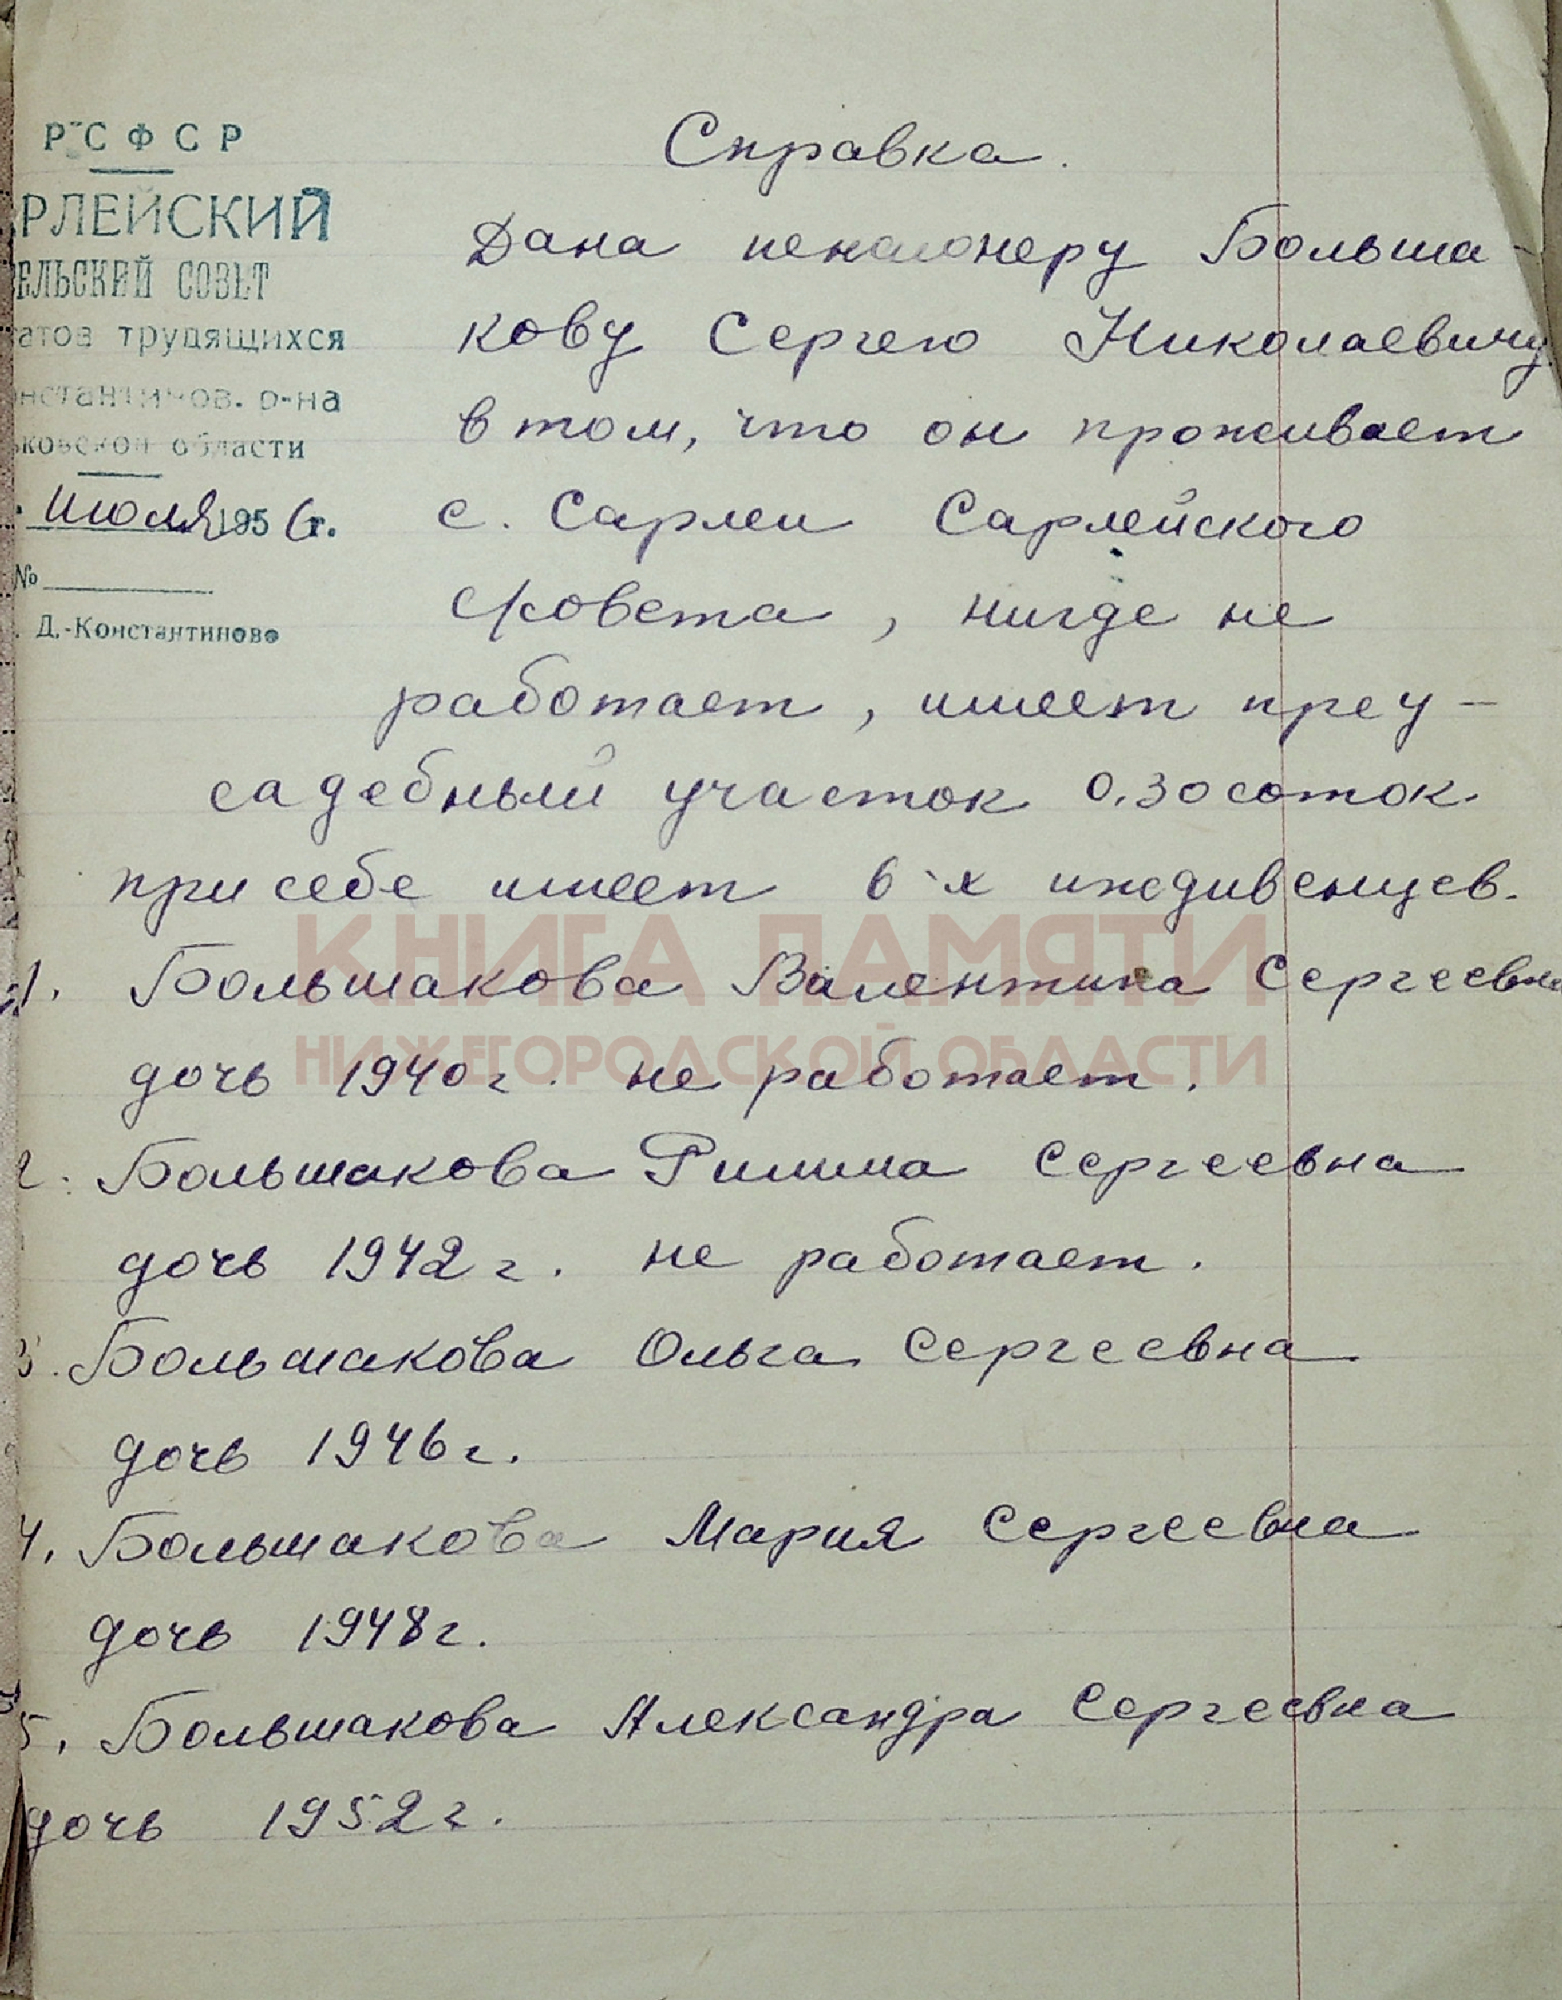 РСФСР
РЛЕЙСКИЙ
ЕЛЬСКИЙ СОВЕТ
татов трудящихся
онстантинов. р-на
ьковской области
июля 1956 г.
№
. Д.-Константиново
Справка.
Дана пенсионеру Больша-
кову Сергею Николаевичу
в том, что он проживает
с. Сарлеи Сарлейского
с/совета, нигде не
работает, имеет преу-
садебный участок 0.30 соток.
при себе имеет 6-х иждивенцев.
1. Большакова Валентина Сергеевна
дочь 1940 г. не работает.
2. Большакова Римма Сергеевна
дочь 1942 г. не работает.
3. Большакова Ольга Сергеевна
дочь 1946 г.
4. Большакова Мария Сергеевна
дочь 1948 г.
5. Большакова Александра Сергеевна
дочь 1952 г.
КНИГА ПАМЯТИ
НИЖЕГОРОДСКОЙ ОБЛАСТИ